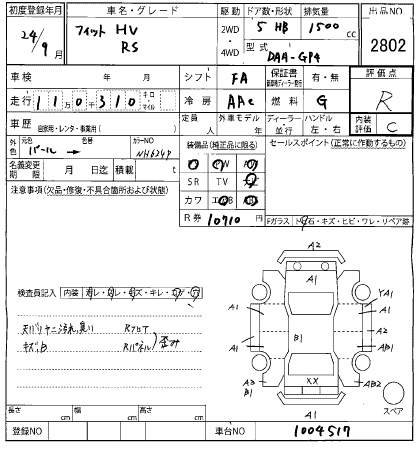 初度登録年月 車名・グレード 駆動 ドア数・形状 排気量 出品NO
24年/9月 フィット HV RS 2WD・4WD 5 HB 1500cc 2802
型式 DAA-GP4
車検 年 月 シフト FA 保証書 有・無 評価点
走行 11万0千310 キロ・マイル 冷房 AAC 燃料 G R
車歴 自家用・レンタ・事業用( ) 定員 人 外車モデル 年 ディーラー 並行 ハンドル 左・右 内装評価 C
外色 元色 パール → 色替 カラーNO NH624P 装備品(純正品に限る) セールスポイント(正常に作動するもの)
名義変更期限 月 日迄 積載 t
注意事項(欠品・修復・不具合箇所および状態) SR TV
カワ
R券 10710円 Fガラス 石・キズ・ヒビ・ワレ・リペア跡
A2
A1
検査員記入 内装
A1 YA1
天バリヤニ汚れ、臭い Rフロア 歪み
キズ、凹 Rパネル
B1 A2
A1 AB1
XX
A3 B1 AB2
A1 スペア
長さ cm 幅 cm 高さ cm
登録NO 車台NO 1004517